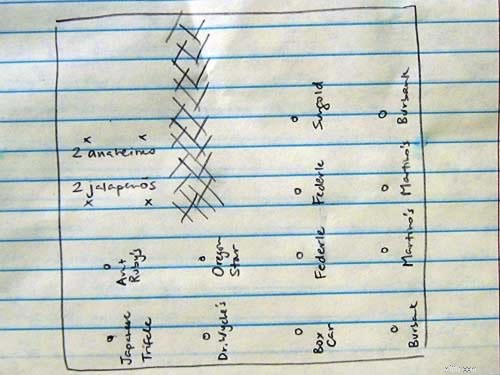 2 anaheims
2 jalapeño's
Sungold
Burbank
Federle
Martino's
Aunt
Ruby's
Oregon
Star
Federle
Martino's
Japanese
Trifele
Dr. Wyche's
Box
Car
Burbank